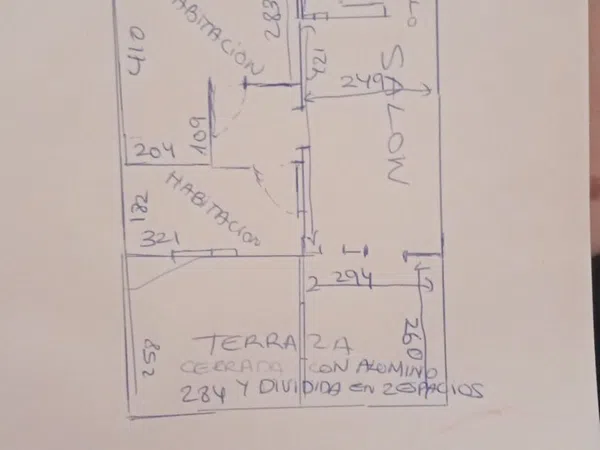 HABITACION
283
410
421
249
SALON
109
204
HABITACION
182
321
294
260
258
TERRAZA
CERRADA CON ALUMINO
284 Y DIVIDIDA EN 2 ESPACIOS